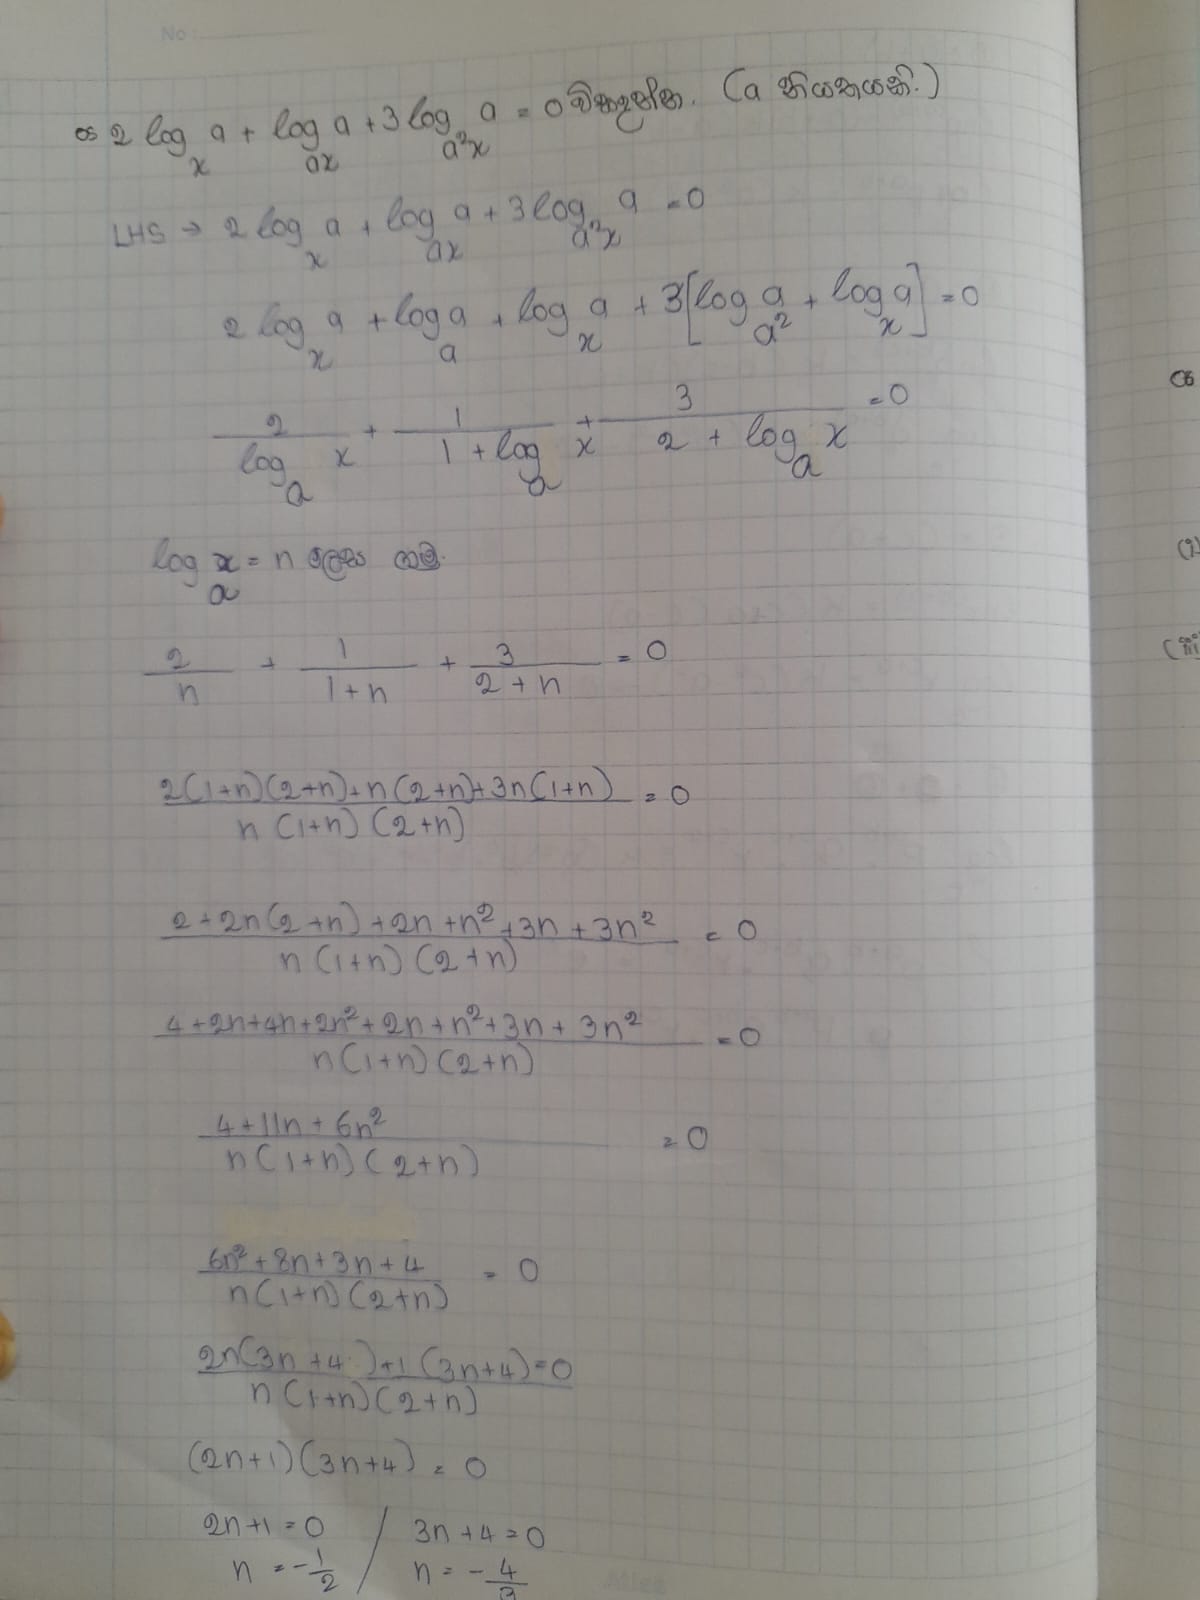 No :
05 2 log_x a + log_ax a + 3 log_a²x a = 0 විසඳන්න. (a නියතයකි.)
LHS → 2 log_x a + log_ax a + 3 log_a²x a = 0
2 log_x a + log_a a + log_x a + 3[log_a² a + log_x a] = 0
2/(log_a x) + 1/(1 + log_a x) + 3/(2 + log_a x) = 0
log_a x = n ලෙස ගමු.
2/n + 1/(1+n) + 3/(2+n) = 0
(2(1+n)(2+n)+n(2+n)+3n(1+n))/(n(1+n)(2+n)) = 0
(2+2n(2+n)+2n+n²+3n+3n²)/(n(1+n)(2+n)) = 0
(4+2n+4n+2n²+2n+n²+3n+3n²)/(n(1+n)(2+n)) = 0
(4+11n+6n²)/(n(1+n)(2+n)) = 0
(6n²+8n+3n+4)/(n(1+n)(2+n)) = 0
(2n(3n+4)+1(3n+4))/(n(1+n)(2+n)) = 0
(2n+1)(3n+4) = 0
2n+1 = 0 / 3n+4 = 0
n = -1/2 / n = -4/3